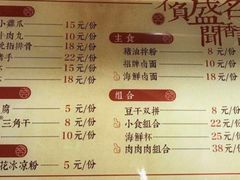 小雞爪 15元/份
牛肉丸 15元/份
排骨 18元/份
手 22元/份
18元/份
腐 5元/份
三角干 8元/份
10元/份
花冰凉粉 5元/份
不負盛名
聞香
主食
豬油拌粉 8元/份
招牌卤面 18元/份
海鲜卤面 22元/份
组合
豆干双拼 12元/份
小食组合 22元/份
海鲜杯 25元/份
肉肉肉组合 38元/份